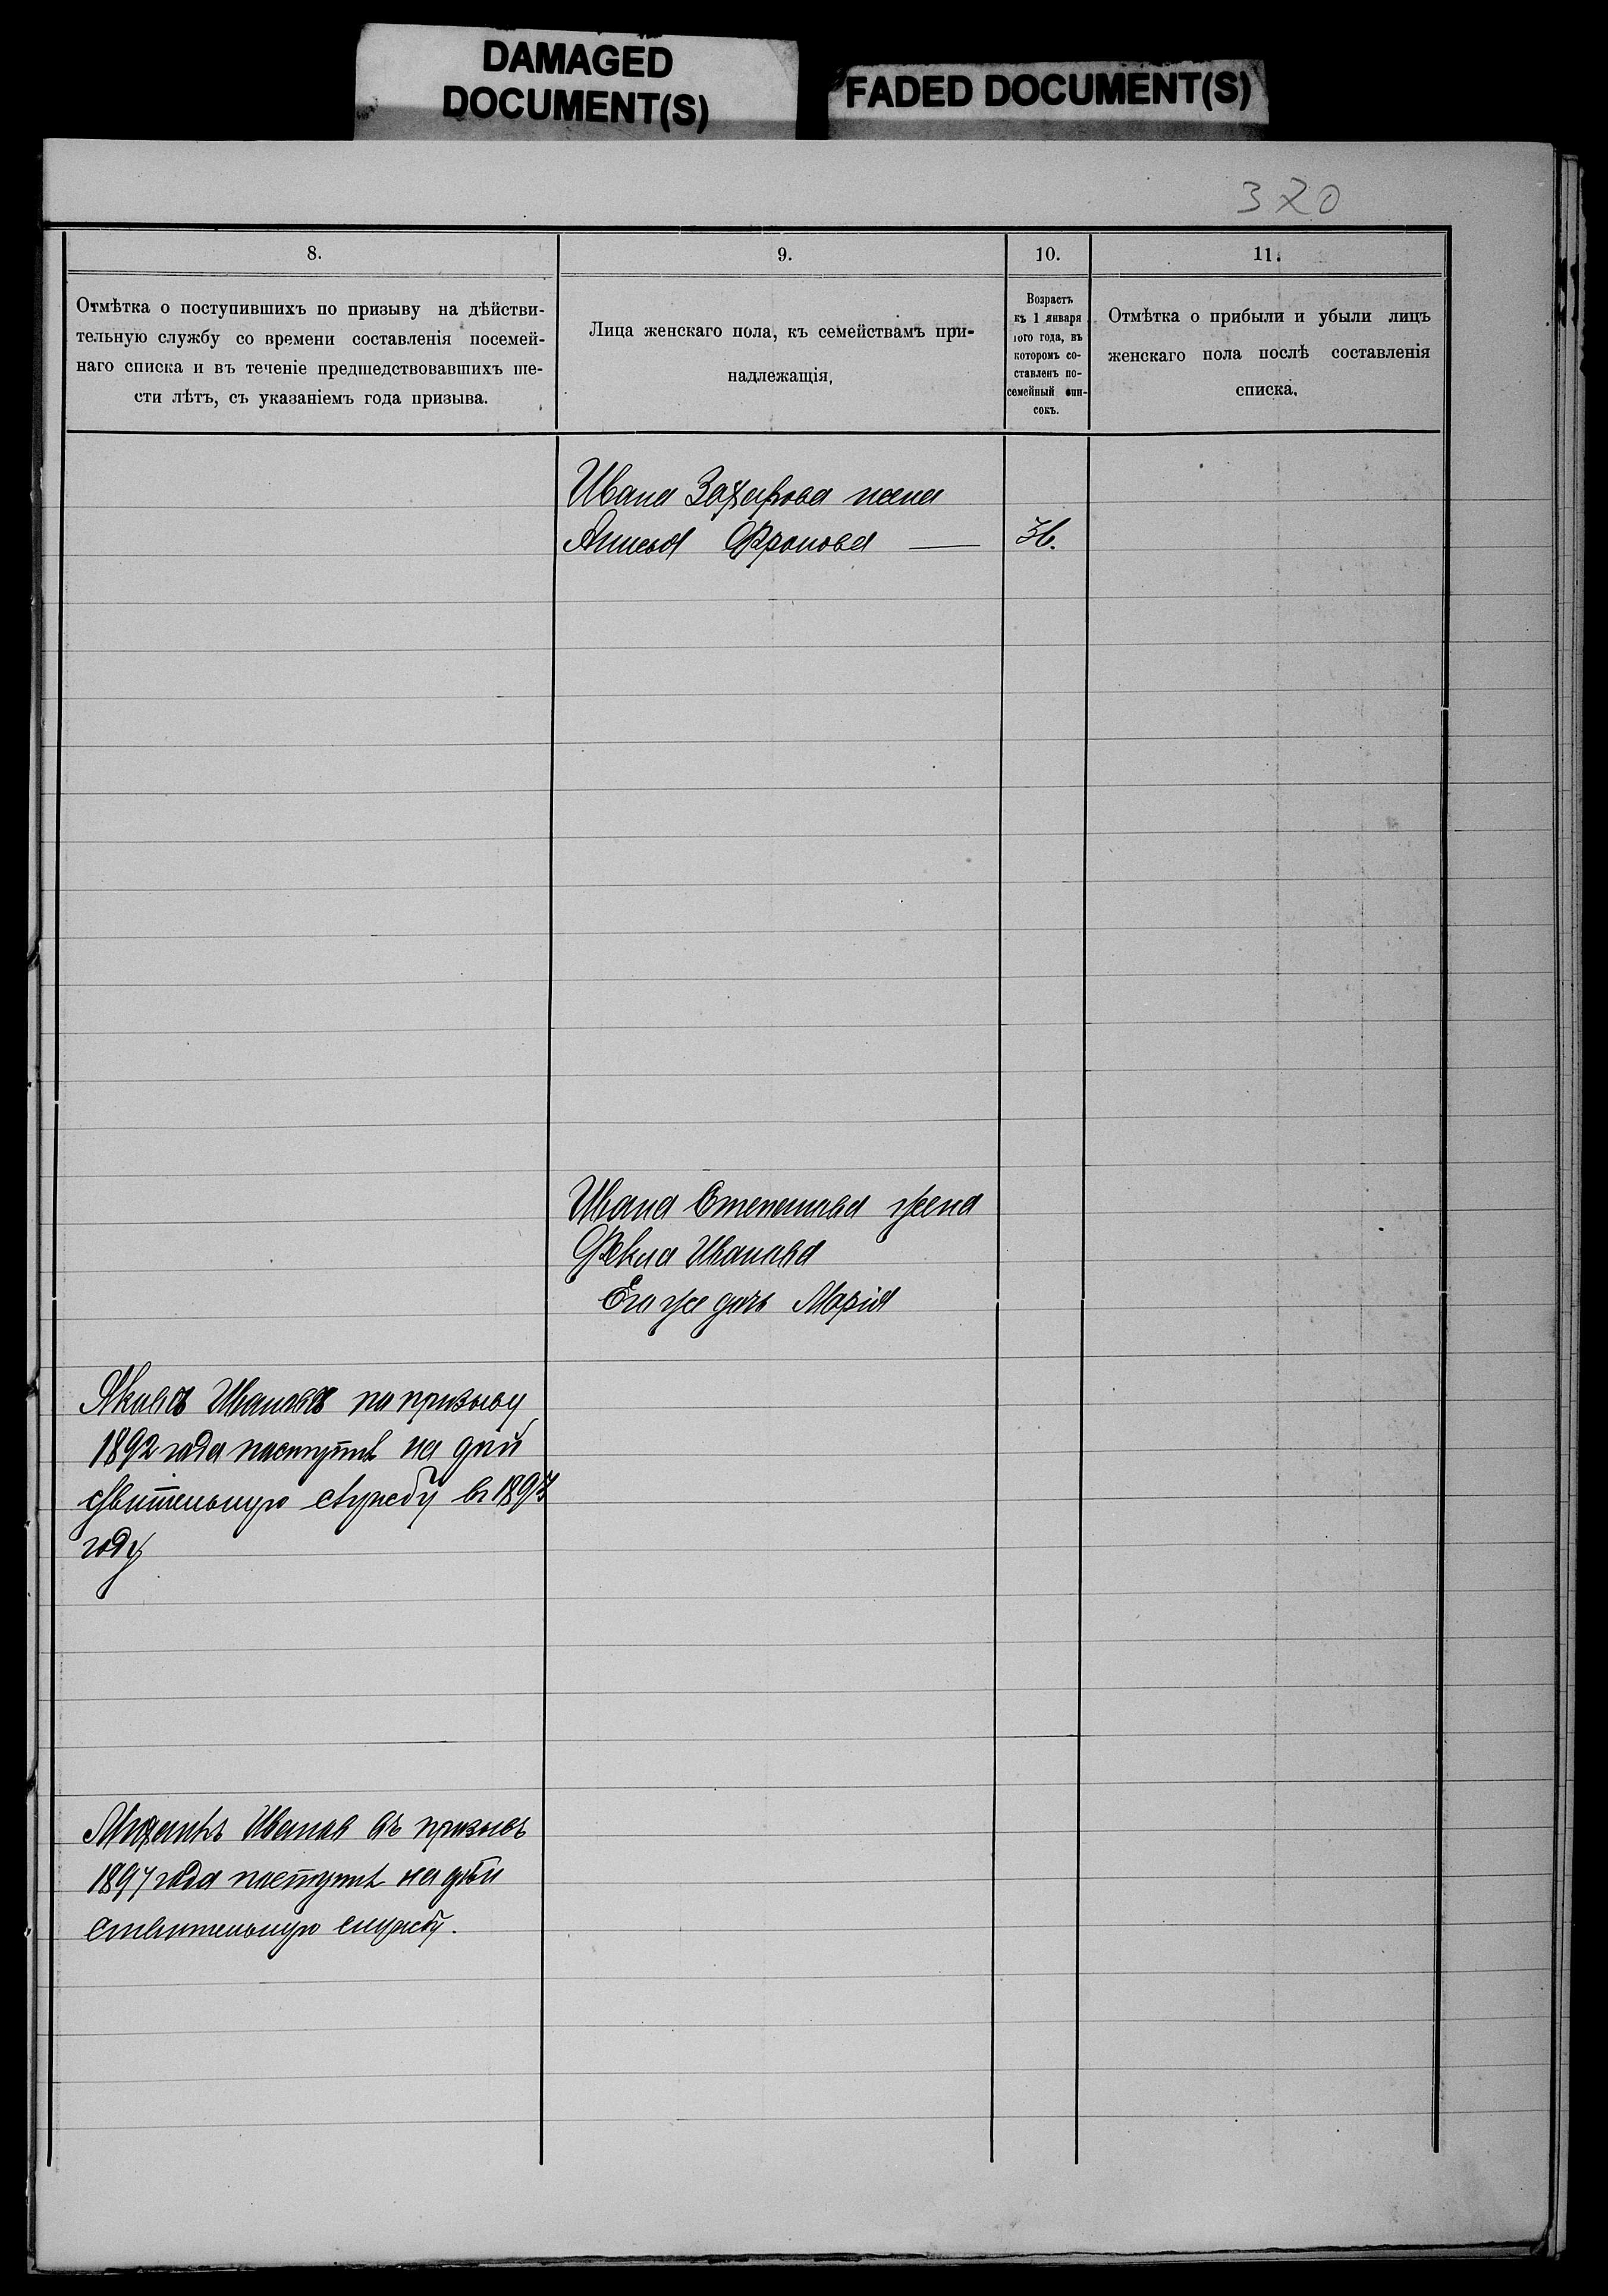 DAMAGED
DOCUMENT(S)
FADED DOCUMENT(S)
320
8.
9.
10.
11.
Отмѣтка о поступившихъ по призыву на дѣйстви-
тельную службу со времени составленія посемей-
наго списка и въ теченіе предшедствовавшихъ ше-
сти лѣтъ, съ указаніемъ года призыва.
Лица женскаго пола, къ семействамъ при-
надлежащія,
Возрастъ
къ 1 января
того года, въ
которомъ со-
ставленъ по-
семейный спи-
сокъ.
Отмѣтка о прибыли и убыли лицъ
женскаго пола послѣ составленія
списка.
Ивана Захарова жена
Анисья Фролова —
Ивана Степанова жена
Фекла Иванова
Его же дочь Марія
Яковъ Ивановъ по призыву
1892 года поступилъ на дѣй
ствительную службу въ 1893
году
Михаилъ Ивановъ въ призывъ
1897 года поступилъ на дѣй
ствительную службу.